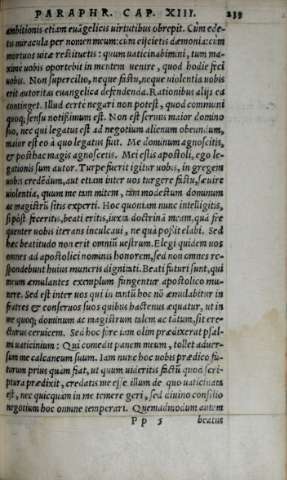 PARAPHR. CAP. XIII. 233
ambitionis etiam euãgelicis uirtutibus obrepit. Cùm ede-
tis miracula per nomen meum: cùm eijcietis dæmonia: cùm
mortuos uitæ restituetis: quum uaticinabimini, tum ma-
ximè uobis oportebit in mentem uenire, quod hodie feci
uobis. Non supercilio, neque fastu, neque uiolentia uobis
erit autoritas euangelica defendenda. Rationibus alijs ea
continget. Illud certè negari non potest, quod communi
quoq; sensu notissimum est. Non est seruus maior domino
suo, nec qui legatus est ad negotium alienum obeundum,
maior est eo à quo legatus fuit. Me dominum agnoscitis,
& posthac magis agnoscetis. Mei estis apostoli, ego le-
gationis sum autor. Turpe fuerit igitur uobis, in gregem
uobis creditum, aut etiam inter uos turgere fastu, sæuire
uiolentia, quum me tam mitem, tàm modestum dominum
ac magistrũ sitis experti. Hoc quoniam nunc intelligitis,
si pòst feceritis, beati eritis, iuxta doctrinã meam, quã fre
quenter uobis iterans inculcaui, ne quà possit elabi. Sed
hæc beatitudo non erit omniũ uestrum. Elegi quidem uos
omnes ad apostolici nominis honorem, sed non omnes re-
spondebunt huius muneris dignitati. Beati futuri sunt, qui
meum æmulantes exemplum fungentur apostolico mu-
nere. Sed est inter uos qui in tantũ hoc nõ æmulabitur in
fratres & conseruos suos quibus hactenus æquatur, ut in
me quoq; dominum ac magistrum talem ac tantum, sit ere-
cturus ceruicem. Sed hoc fore iam olim prædixerat psal-
mi uaticinium: Qui comedit panem meum, tollet aduer-
sum me calcaneum suum. Iam nunc hoc uobis prædico fu-
turum prius quàm fiat, ut quum uideritis factũ quod scri-
ptura prædixit, credatis me esse illum de quo uaticinata
est, nec quicquam in me temere geri, sed diuino consilio
negotium hoc omne temperari. Quemadmodum autem
Pp 5 beatus